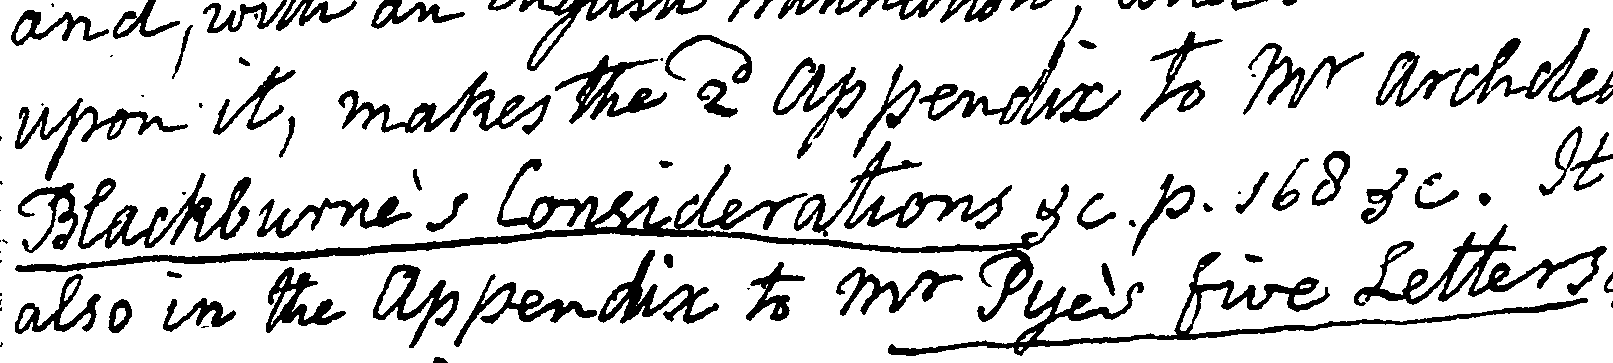 and, with an English Translation,
upon it, makes the 2d Appendix to Mr Archdea
Blackburne's Considerations &c. p. 168 &c. It
also in the Appendix to Mr Pye's five Letters.